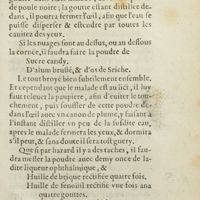 de poule noire; la goutte estant distillée de-
dans, il pourra fermer l'œil, afin que l'eau se
puisse disperser & estendre par toutes les
cauitez des yeux.
Si les nuages sont au dessus, ou au dessous
la cornée, il faudra faire la poudre de
Sucre candy,
D'alum bruslé, & d'os de Seiche.
Le tout broyé bien subtilement ensemble.
Et cependant que le malade est au lict, il luy
faut releuer la paupiere, afin d'euiter l'attou-
chement, puis souffler de cette poudre de-
dans l'œil auec vn canon de plume, y faisant à
l'instant distiller vn peu de la susdite eau,
apres le malade fermera les yeux, & dormira
s'il peut, & sans doute il sera tost guery.
Que si par hazard il y a des taches, il fau-
dra mesler la poudre auec demy once de la-
dite liqueur ophthalmique, &
Huille de brique rectifiée quatre fois,
Huille de fenouil rectifié vne fois ana
quatre gouttes.